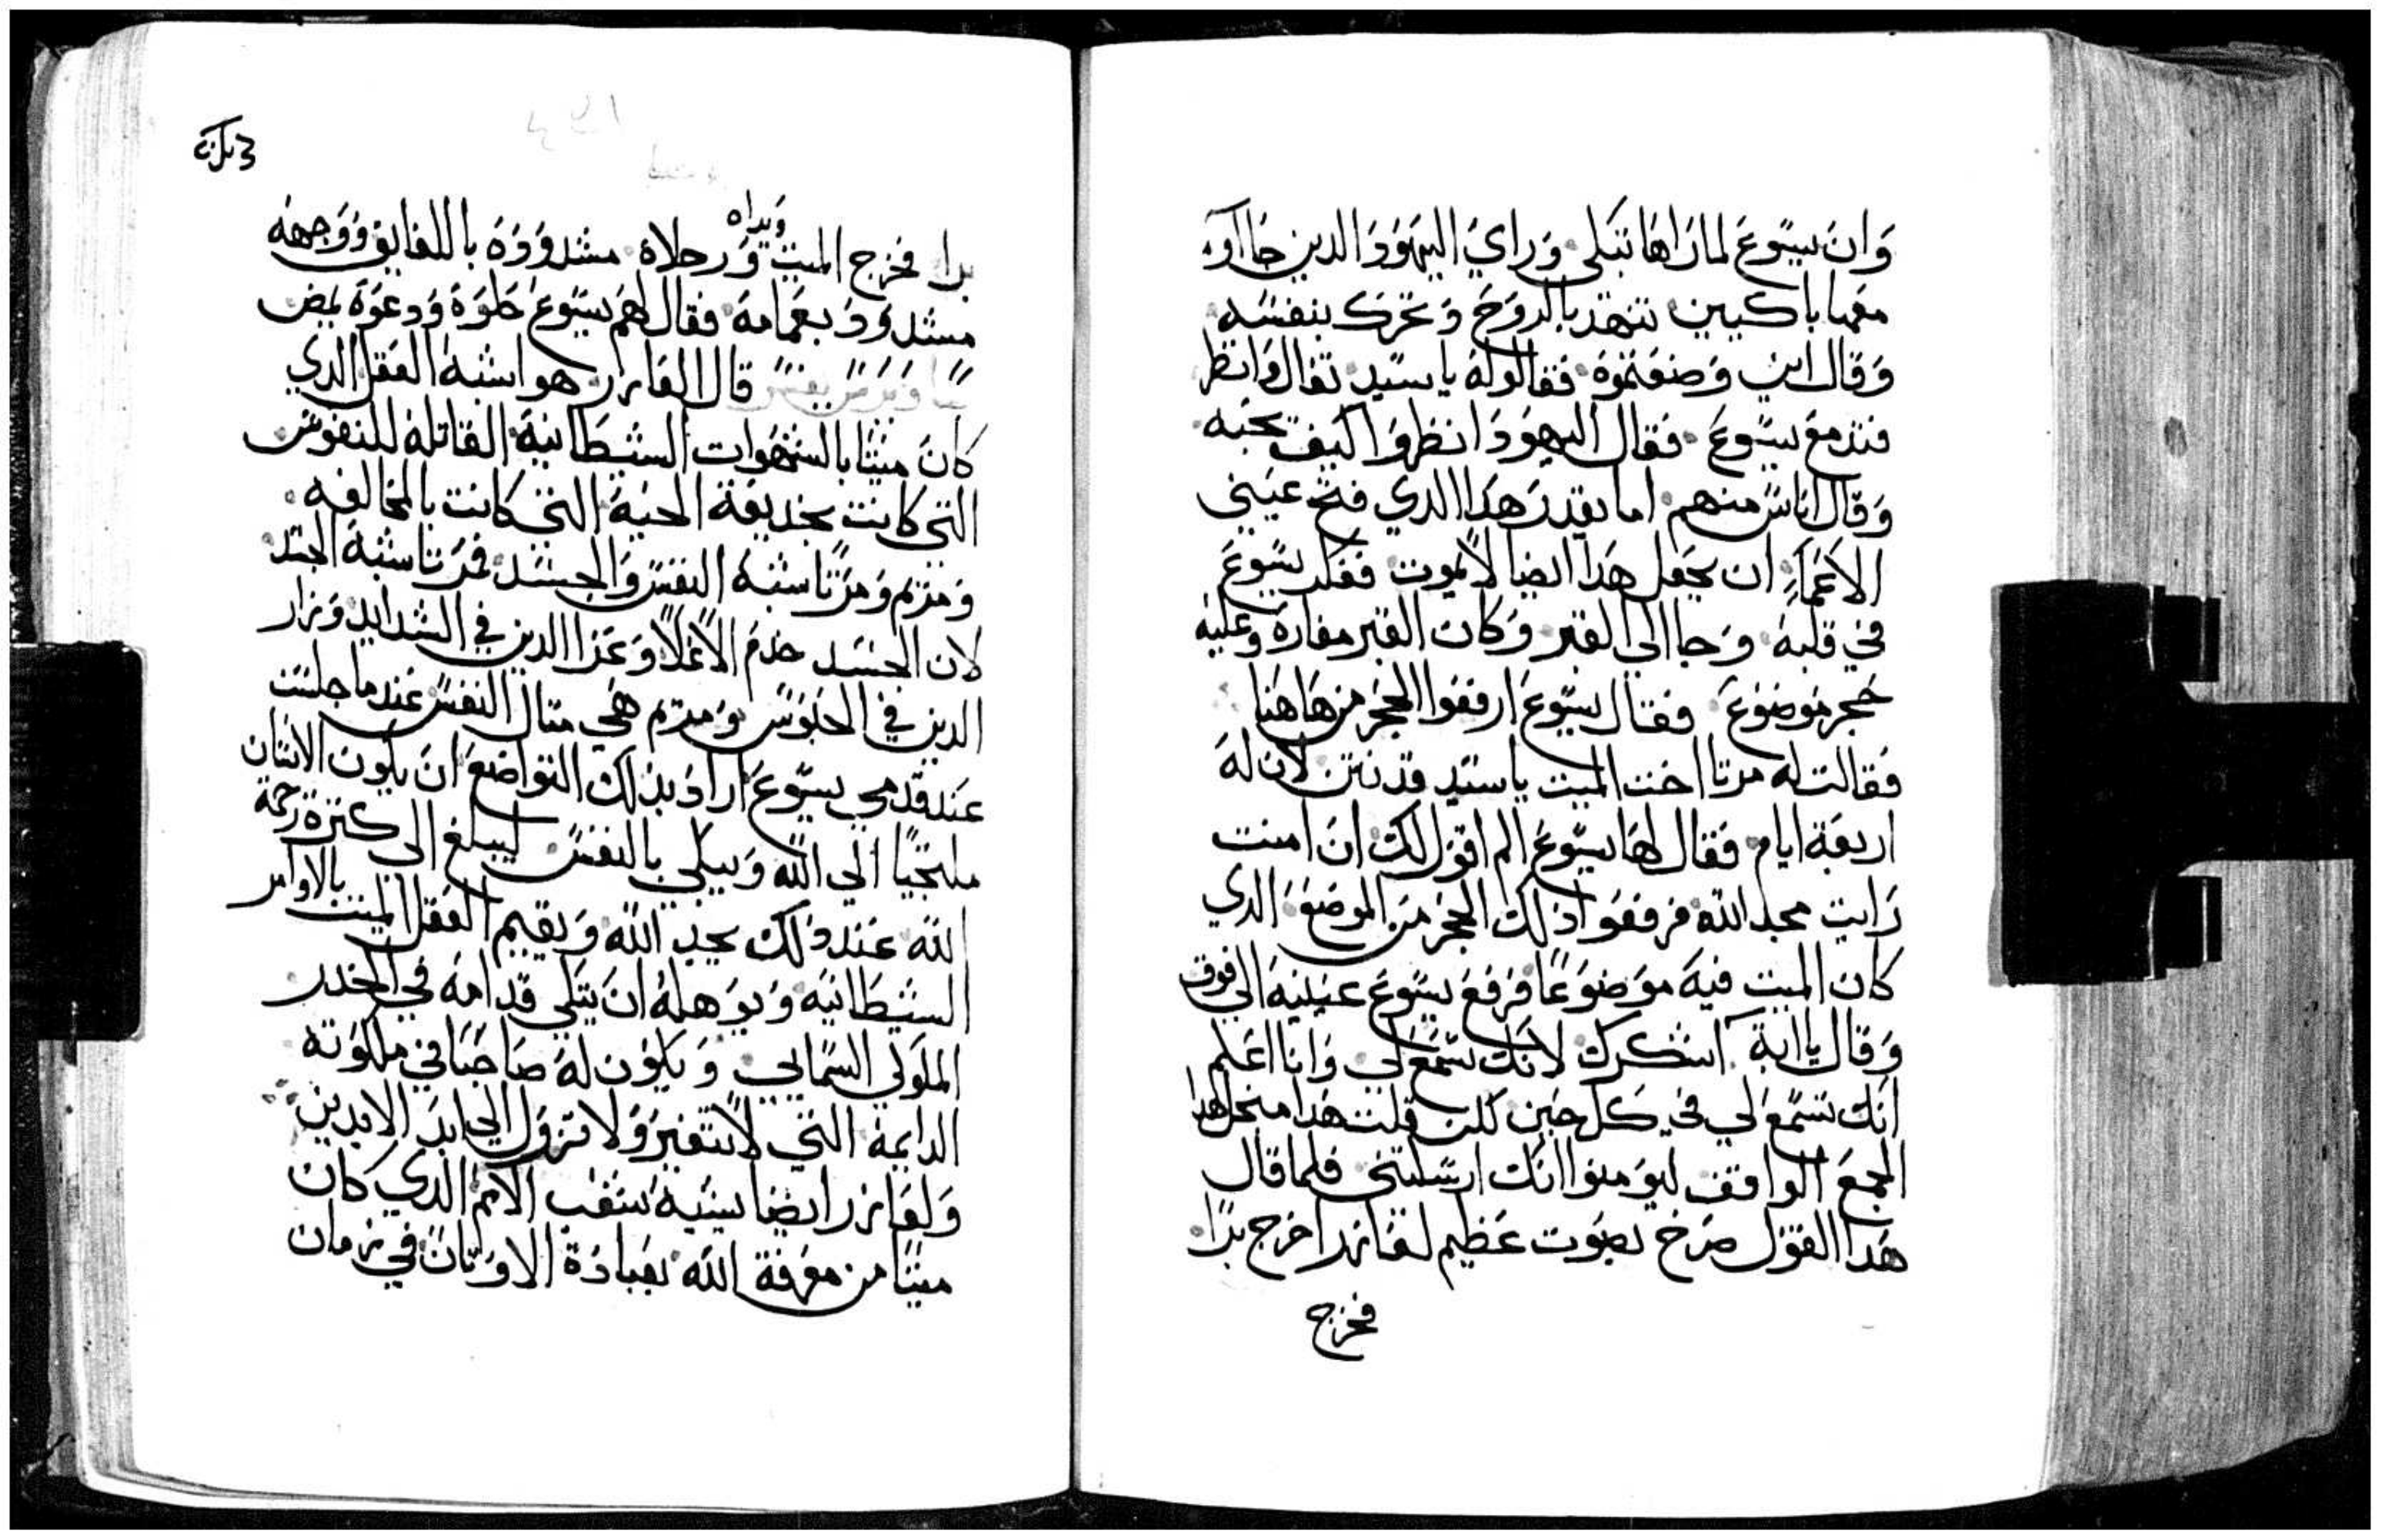 وان يسوع لما راها تبكي وراي اليهود الدين جااو
معها باكيين تنهد بالروح وتحرك بنفسه
وقال اين وضعتموه فقالو له يا سيد تعال وانظر
فتدمع يسوع فقال اليهود انظروا كيف يحبه
وقال اناس منهم اما يقدر هدا الدي فتح عيني
الاعما ان يجعل هدا ايضا لا يموت ففكر يسوع
في قلبه وجا الي القبر وكان القبر مغاره وعليه
حجر موضوع فقال يسوع ارفعوا الحجر من هاهنا
فقالت له مرتا اخت الميت يا سيد قد نتن لان له
اربعة ايام فقال لها يسوع الم اقول لك ان امنت
رايت مجد الله فرفعوا ذلك الحجر من الموضع الدي
كان الميت فيه موضوعا فرفع يسوع عينيه الي فوق
وقال يا ابة اشكرك لانك تسمع لي وانا اعلم
انك تسمع لي في كل حين لكن قلت هدا من اجل هدا
الجمع الواقف ليومنوا انك ارسلتني فلما قال
هدا القول صرخ بصوت عظيم لعازر اخرج برا
فخرج
برا فخرج الميت ويداه ورجلاه مشدوده باللفايف ووجهه
مشدود بعمامه فقال لهم يسوع حلوه ودعوه يمض
قال العازر هو اشبه العقل الدي
كان ميتا بالشهوات الشيطانية القاتله للنفوس
التي كانت بخديعة الحية التي كانت بالمخالفه
ومريم ومرتا شبه النفس والجسد فمرتا شبه الجسد
لان الجسد خدم الاعلا وعزا الدين في الشدايد وزار
الدين في الحبوس ومريم هي مثال النفس عندما جلست
عند قدمي يسوع اراد بذلك التواضع ان يكون الانسان
ملتجيا الي الله ويبكي بالنفس ليبلغ الي كثرة رحمة
الله عند ذلك يجد الله ويقيم العقل الميت بالاوامر
الشيطانيه ويوهله ان يتكي قدامه في الخدر
الملوكي السمايي ويكون له صاحبا في ملكوته
الدايمة التي لا تتغير ولا تزول الي ابد الابدين
ولعازر ايضا يشبه شعب الامم الدي كان
ميتا من معرفة الله بعبادة الاوثان في زمان